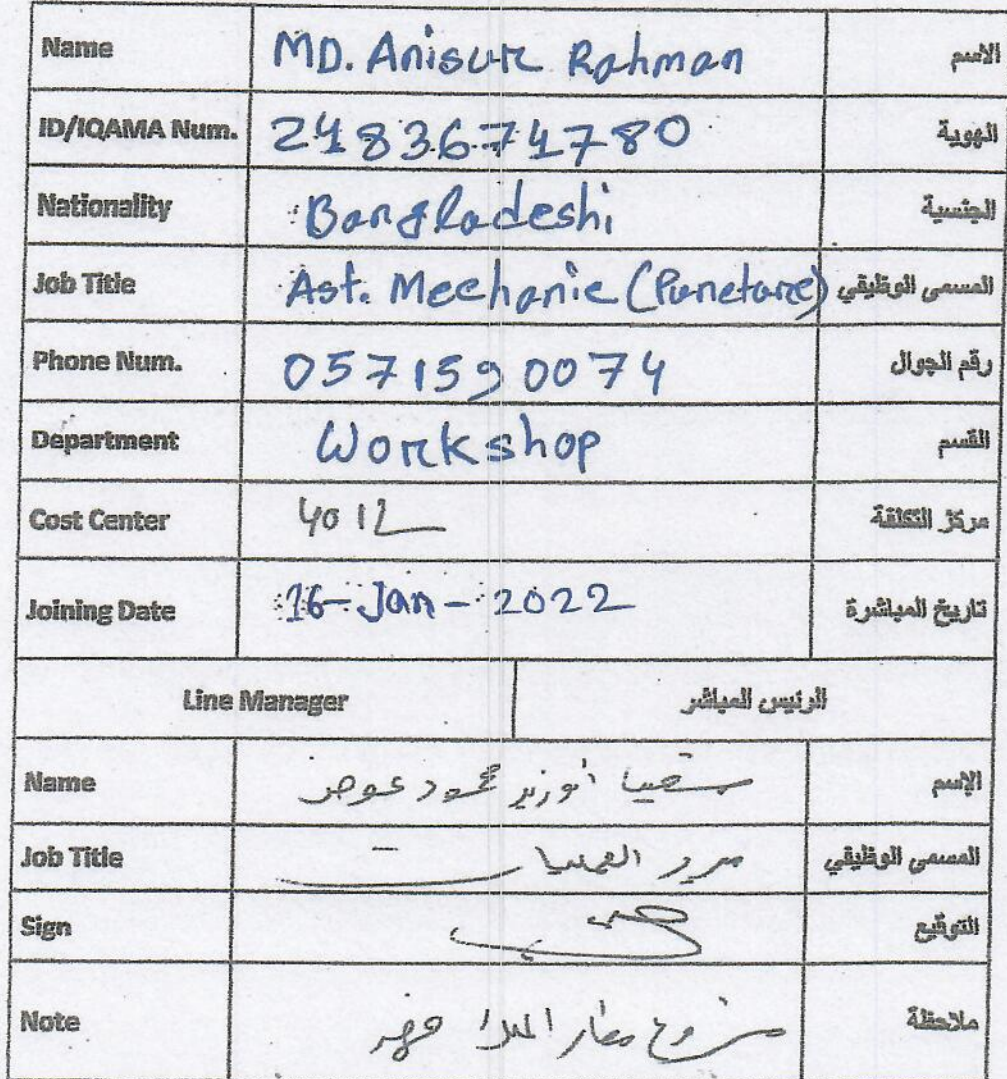 Name MD. Anisur Rahman الاسم
ID/IQAMA Num. 2483674780 الهوية
Nationality Bangladeshi الجنسية
Job Title Ast. Mechanic (Puncture) المسمى الوظيفي
Phone Num. 0571590074 رقم الجوال
Department Workshop القسم
Cost Center 4012 مركز التكلفة
Joining Date 16-Jan-2022 تاريخ المباشرة
Line Manager الرئيس المباشر
Name محمود عوض الإسم
Job Title مدير العمليات المسمى الوظيفي
Sign التوقيع
Note مشروع مطار الملك فهد ملاحظة